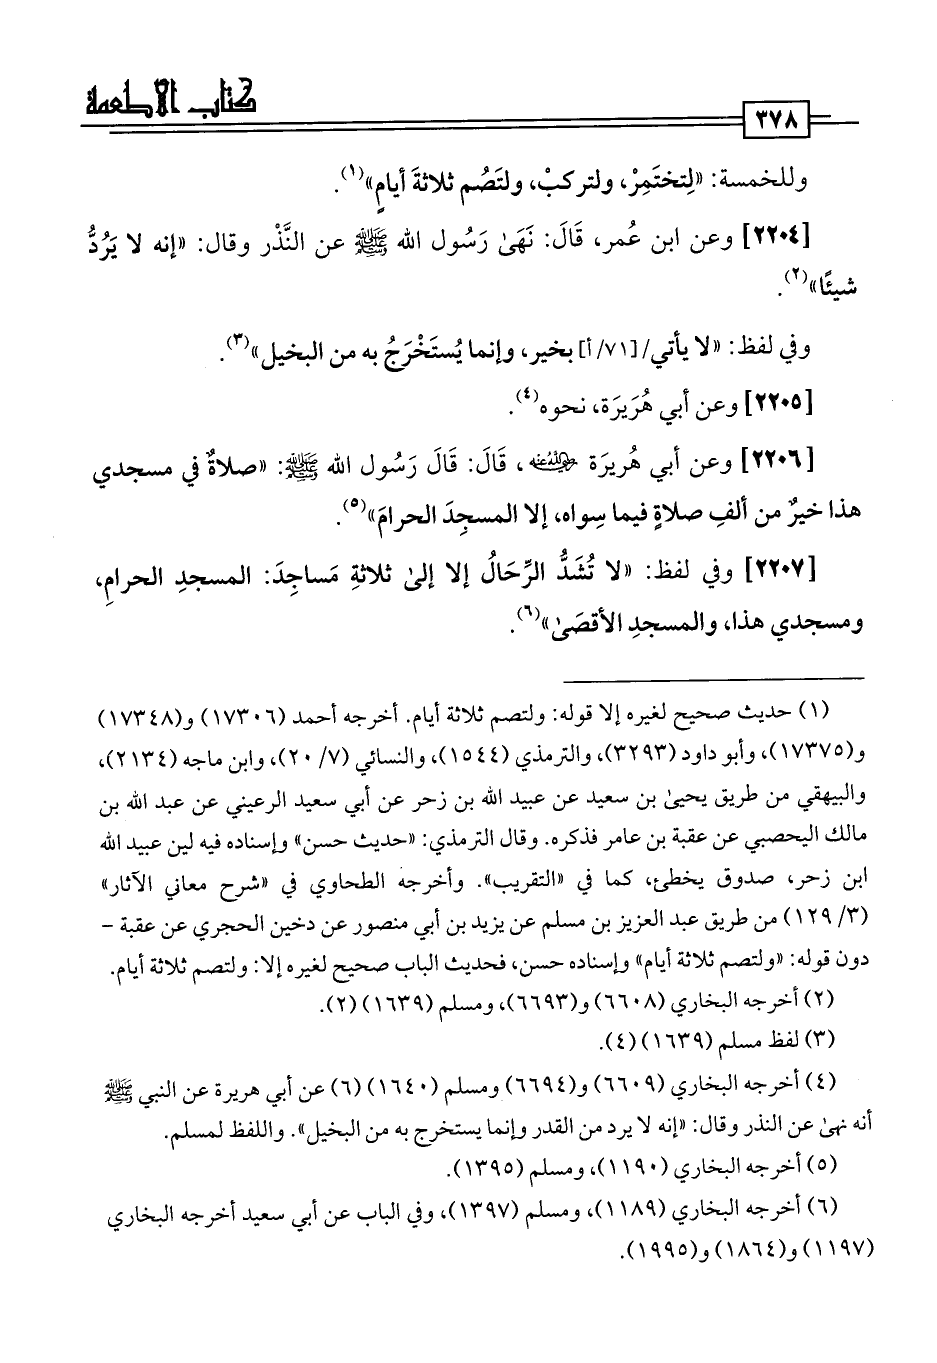 كتاب الأطعمة
٣٧٨
وللخمسة: «لِتختَمِرْ، ولتركبْ، ولتَصُم ثلاثةَ أيامٍ»(١).
[٢٢٠٤] وعن ابن عُمر، قَالَ: نَهَىٰ رَسُول الله ﷺ عن النَّذْر وقال: «إنه لا يَرُدُّ
شيئًا»(٢).
وفي لفظ: «لا يأتي/ [٧١/ أ] بخير، وإنما يُستَخْرَجُ به من البخيل»(٣).
[٢٢٠٥] وعن أبي هُرَيرَة، نحوه(٤).
[٢٢٠٦] وعن أبي هُريرَة رضي الله عنه، قَالَ: قَالَ رَسُول الله ﷺ: «صلاةٌ في مسجدي
هذا خيرٌ من ألفِ صلاةٍ فيما سِواه، إلا المسجِدَ الحرامَ»(٥).
[٢٢٠٧] وفي لفظ: «لا تُشَدُّ الرِّحَالُ إلا إلىٰ ثلاثةِ مَساجِدَ: المسجدِ الحرامِ،
ومسجدي هذا، والمسجدِ الأقصَىٰ»(٦).
(١) حديث صحيح لغيره إلا قوله: ولتصم ثلاثة أيام. أخرجه أحمد (١٧٣٠٦) و(١٧٣٤٨)
و(١٧٣٧٥)، وأبو داود (٣٢٩٣)، والترمذي (١٥٤٤)، والنسائي (٧/ ٢٠)، وابن ماجه (٢١٣٤)،
والبيهقي من طريق يحيىٰ بن سعيد عن عبيد الله بن زحر عن أبي سعيد الرعيني عن عبد الله بن
مالك اليحصبي عن عقبة بن عامر فذكره. وقال الترمذي: «حديث حسن» وإسناده فيه لين عبيد الله
ابن زحر، صدوق يخطئ، كما في «التقريب». وأخرجه الطحاوي في «شرح معاني الآثار»
(٣/ ١٢٩) من طريق عبد العزيز بن مسلم عن يزيد بن أبي منصور عن دخين الحجري عن عقبة –
دون قوله: «ولتصم ثلاثة أيام» وإسناده حسن، فحديث الباب صحيح لغيره إلا: ولتصم ثلاثة أيام.
(٢) أخرجه البخاري (٦٦٠٨) و(٦٦٩٣)، ومسلم (١٦٣٩) (٢).
(٣) لفظ مسلم (١٦٣٩) (٤).
(٤) أخرجه البخاري (٦٦٠٩) و(٦٦٩٤) ومسلم (١٦٤٠) (٦) عن أبي هريرة عن النبي ﷺ
أنه نهىٰ عن النذر وقال: «إنه لا يرد من القدر وإنما يستخرج به من البخيل». واللفظ لمسلم.
(٥) أخرجه البخاري (١١٩٠)، ومسلم (١٣٩٥).
(٦) أخرجه البخاري (١١٨٩)، ومسلم (١٣٩٧)، وفي الباب عن أبي سعيد أخرجه البخاري
(١١٩٧) و(١٨٦٤) و(١٩٩٥).